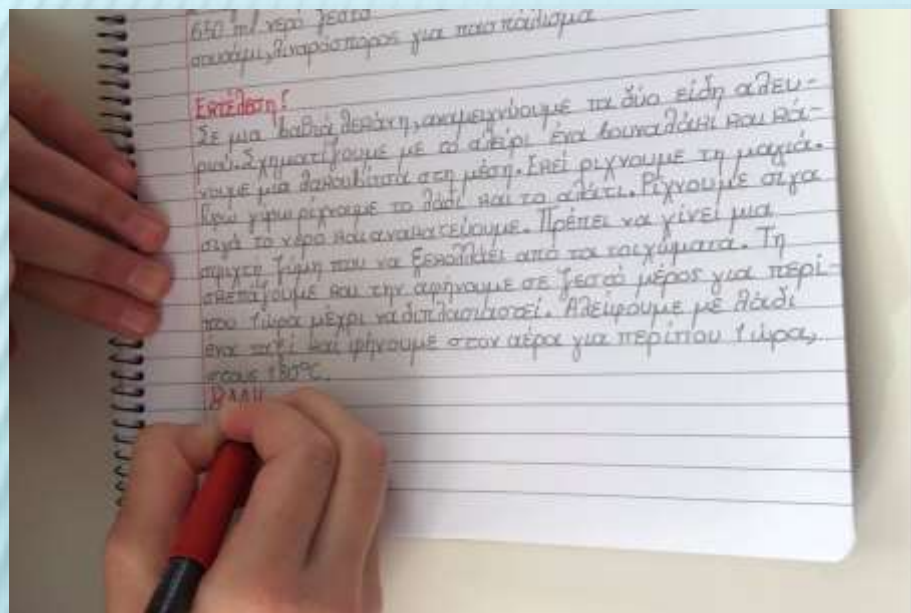 650 ml νερό ζεστό
σουσάμι, λιναρόσπορος για πασπάλισμα
Εκτέλεση!
Σε μια βαθιά λεκάνη, αναμειγνύουμε τα δύο είδη αλευ-
ριού. Σχηματίζουμε με το αλεύρι ένα βουναλάκι και κά-
νουμε μια λακουβίτσα στη μέση. Εκεί ριχνουμε τη μαγιά.
γύρω ρίχνουμε το λάδι και το αλάτι. Ρίχνουμε σιγα
σιγά το νερό και ανακατεύουμε. Πρέπει να γίνει μια
σφιχτή ζύμη που να ξεκολλάει από τα τοιχώματα. Τη
σκεπάζουμε και την αφήνουμε σε ζεστό μέρος για περί-
που 1 ώρα μέχρι να διπλασιαστεί. Αλείφουμε με λάδι
ένα ταψί και ψήνουμε στον αέρα για περίπου 1 ώρα,
στους 180°C.